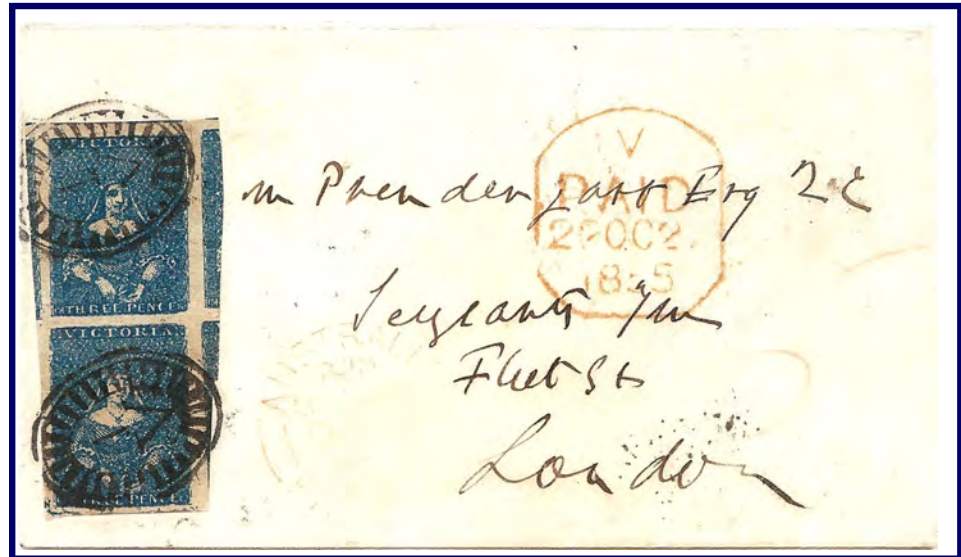 VICTORIA
THREE PENCE
VICTORIA
THREE PENCE
V
PAID
OC
1855
M Prendergast Esq
Sergeants Inn
Fleet St
London